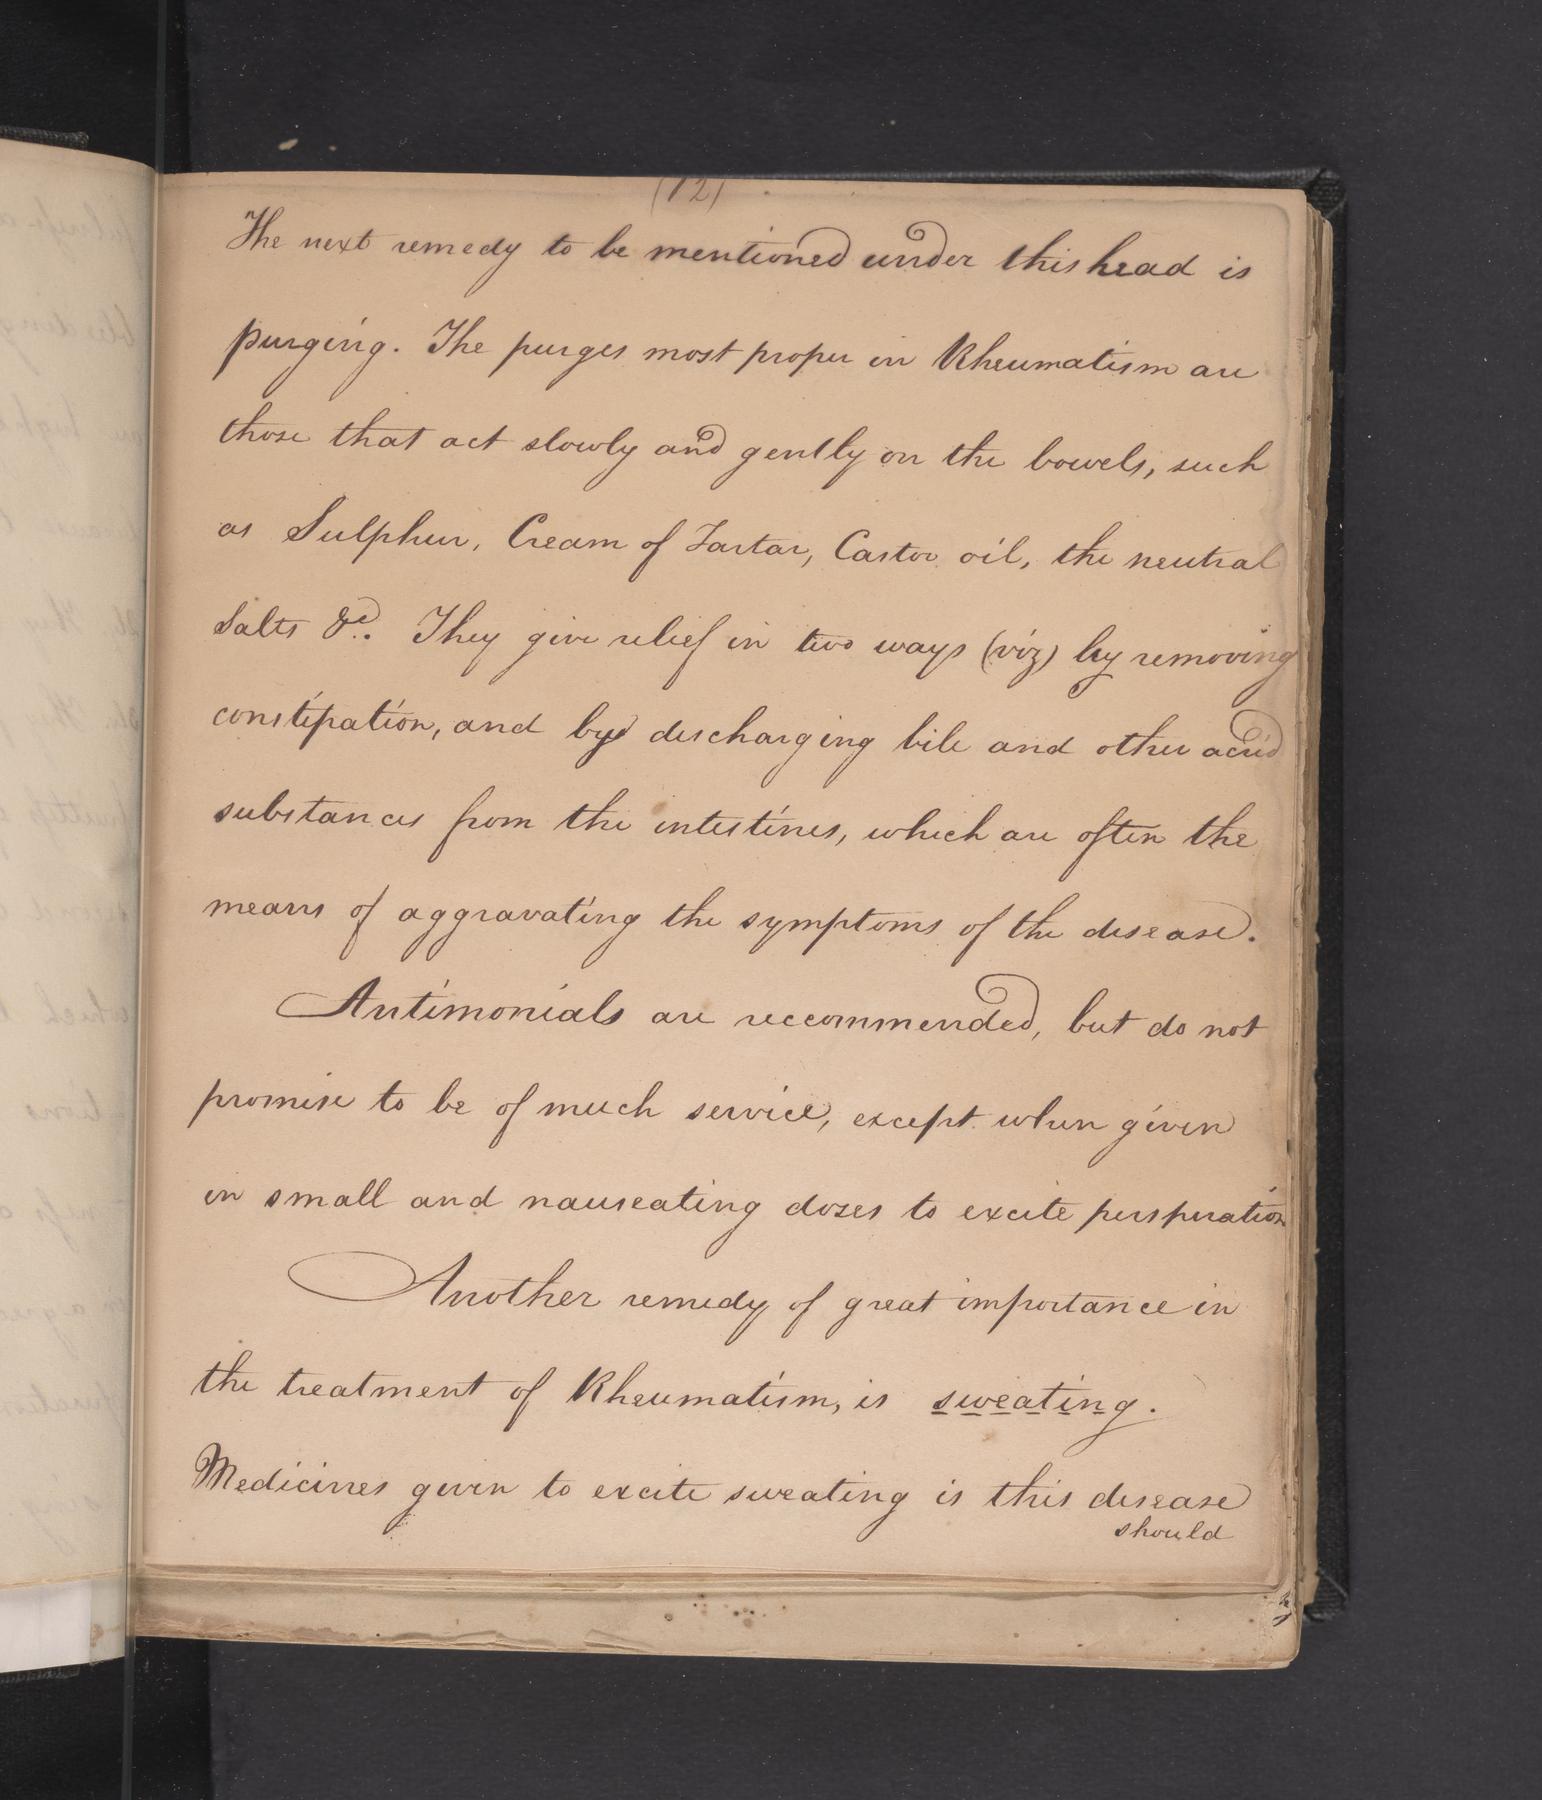 (12)
The next remedy to be mentioned under this head is
purging. The purges most proper in Rheumatism are
those that act slowly and gently on the bowels, such
as Sulphur, Cream of Tartar, Castor oil, the neutral
Salts &c. They give relief in two ways (viz) by removing
constipation, and by discharging bile and other acrid
substances from the intestines, which are often the
means of aggravating the symptoms of the disease.
Antimonials are reccommended, but do not
promise to be of much service, except when given
in small and nauseating dozes to excite perspiration
Another remedy of great importance in
the treatment of Rheumatism, is sweating.
Medicines given to excite sweating is this disease
should